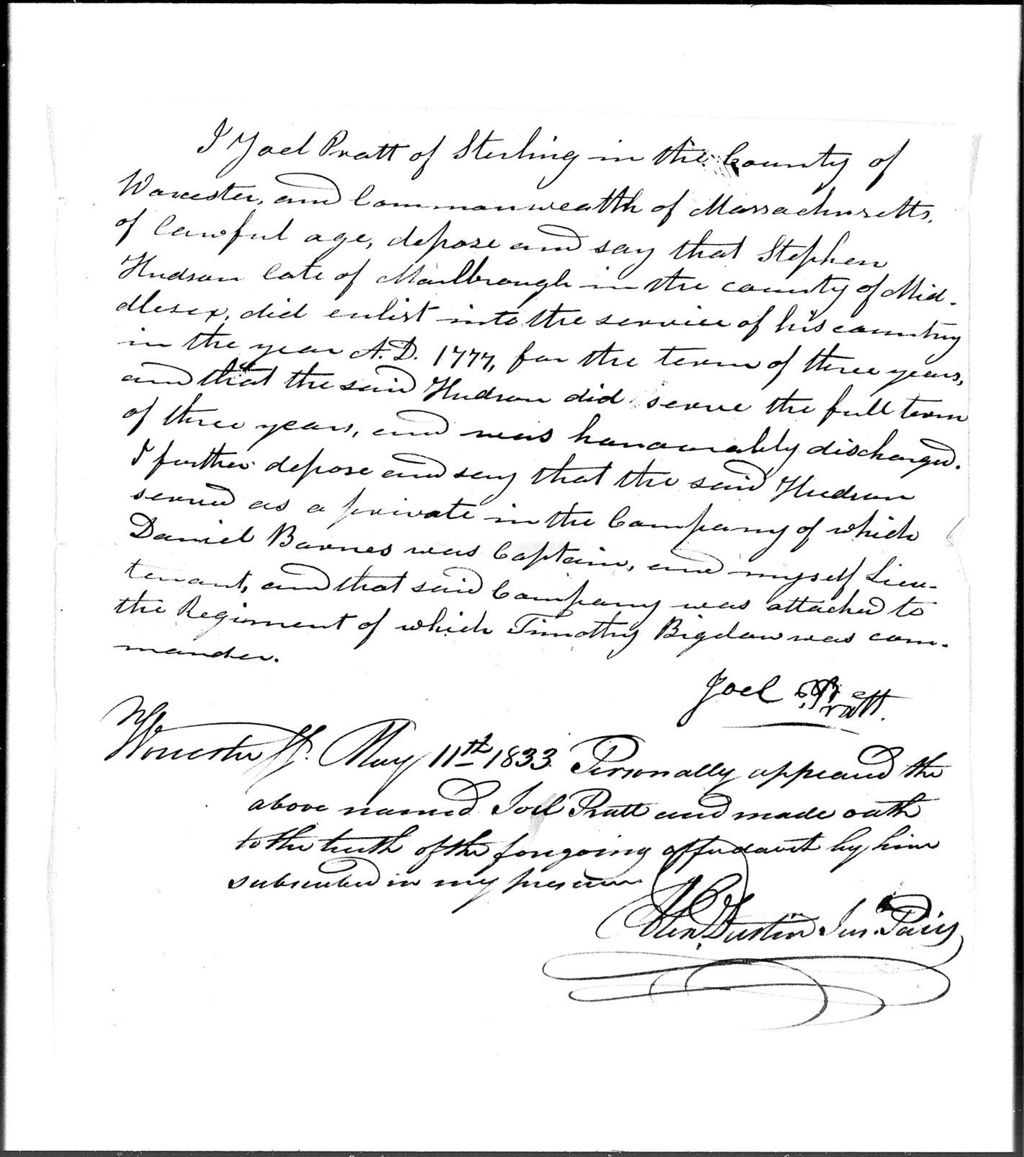 I Joel Pratt of Sterling in the County of
Worcester, and Commonwealth of Massachusetts,
of lawful age, depose and say that Stephen
Hudson late of Marlbrough in the county of Mid-
dlesex, did enlist into the service of his country
in the year A.D. 1777, for the term of three years,
and that the said Hudson did serve the full term
of three years, and was honourably discharged.
I further depose and say that the said Hudson
served as a private in the Company of which
Daniel Barnes was Captain, and myself Lieu-
tenant, and that said Company was attached to
the Regiment of which Timothy Bigelow was com-
mander.
Joel Pratt.
Worcester Ss. May 11th 1833. Personally appeared the
above named Joel Pratt and made oath
to the truth of the foregoing affidavit by him
subscribed in my presence
Dustin Jus. Pacis